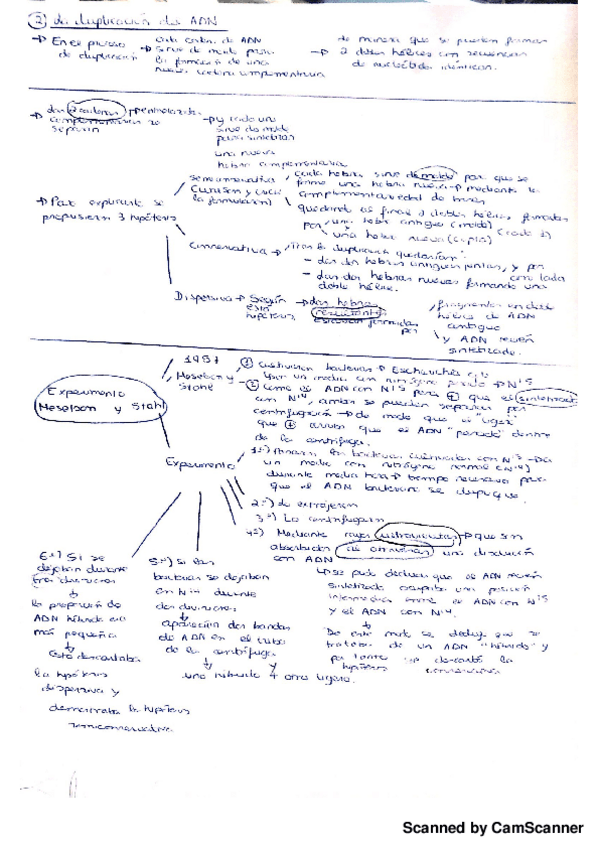 2) La duplicación del ADN
→ En este proceso de duplicación
cada cadena de ADN
→ sirve de molde para la formación de una nueva cadena complementaria
de manera que se pueden formar
→ 2 dobles hélices con secuencias de nucleótidos idénticas.
→ Las 2 cadenas
complementarias se separan
→ y cada una sirve de molde para sintetizar una nueva hebra complementaria
→ Para explicarlo se propusieron 3 hipótesis
semiconservativa (Watson y Crick la formularon)
cada hebra sirve de molde para que se forme una hebra nueva → mediante la complementariedad de bases
quedando al final 2 dobles hélices, formadas por
una hebra antigua (molde)
una hebra nueva (copia)
Conservativa → Tras la duplicación quedarían:
- las dos hebras antiguas juntas, y por
- las dos hebras nuevas formando una doble hélice.
Dispersiva → Según esta hipótesis
→ las hebras resultantes estarían formadas por
fragmentos de doble hélice de ADN antiguo
y ADN recién sintetizado.
Experimento Meselson y Stahl
1957
Meselson y Stahl
1 cultivaron bacterias → Escherichia coli
en un medio con nitrógeno pesado → N15
2 como el ADN con N15 pesa + que el sintetizado con N14, ambos se pueden separar por centrifugación → de modo que el "ligero" queda + arriba que el ADN "pesado" dentro de la centrífuga.
Experimento
1º) Pasaron las bacterias cultivadas con N15 → a un medio con nitrógeno normal (N14) durante media hora → tiempo necesario para que el ADN bacteriano se duplique.
2º) Lo extrajeron
3º) Lo centrifugaron
4º) Mediante rayos ultravioletas → que son absorbidos al atravesar una disolución con ADN
→ se pudo deducir que el ADN recién sintetizado ocupaba una posición intermedia entre el ADN con N15 y el ADN con N14.
De este modo se dedujo que se trataba de un ADN "híbrido" y por tanto se descartó la hipótesis conservativa
5º) Si las bacterias se dejaban en N14 durante dos divisiones
aparecían dos bandas de ADN en el tubo de la centrífuga
una híbrida y otra ligera.
6º) Si se dejaban durante tres divisiones
la proporción de ADN híbrido era más pequeña
Esto descartaba la hipótesis dispersiva y demostraba la hipótesis semiconservativa
Scanned by CamScanner